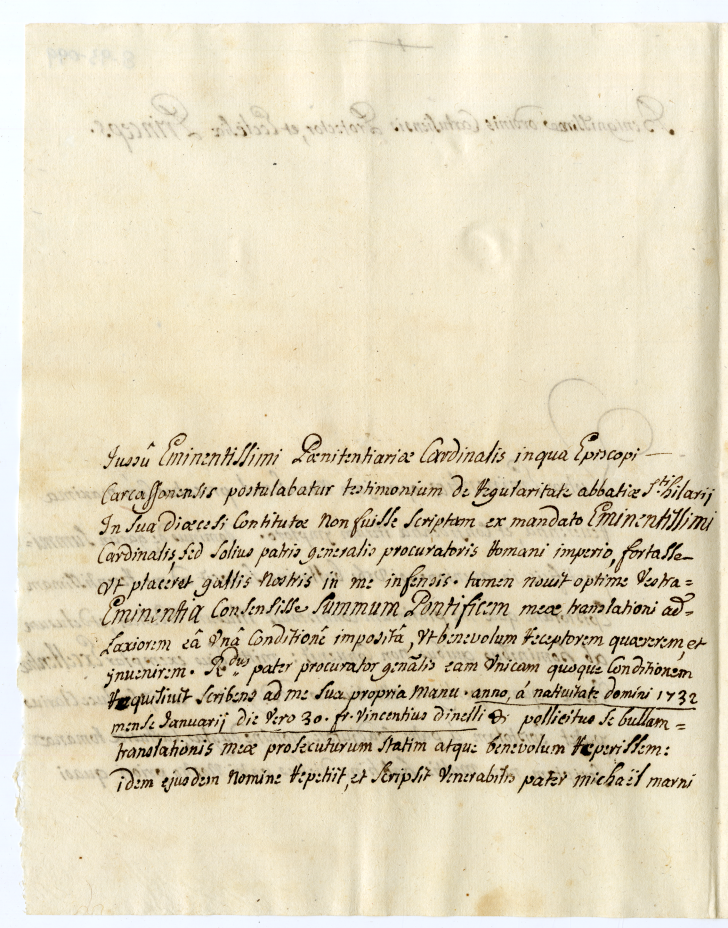 Jussû Eminentissimi Pœnitentiariæ Cardinalis in qua Episcopi
Carcassonensis postulabatur testimonium de Regularitate abbatiæ Sti hilarij
In Sua diæcesi Contitutæ Non fuisse Scriptam ex mandato Eminentissimi
Cardinalis, Sed Solius patris generalis procuratoris Romani imperio, fortasse
Ut placeret gallis Nostris in me infensis. tamen novit optime Vestra=
Eminentia Consensisse Summum Pontificem meæ translationi ad=
Laxiorem eâ Unâ Conditione impositâ, Ut benevolum Receptorem quærerem et
jnvenirem. Rdus pater procurator genālis eam Unicam quoque Conditionem
Requisivit Scribens ad me Sua propria Manu. anno, á nativitate domini 1732
mense Januarij die Vero 30. fr. Vincentius dinelli & pollicitus Se bullam=
translationis meæ prosecuturum Statim atque benevolum Reperissem:
idem ejusdem Nomine Repetiit, et Scripsit Venerabilis pater michaël marni